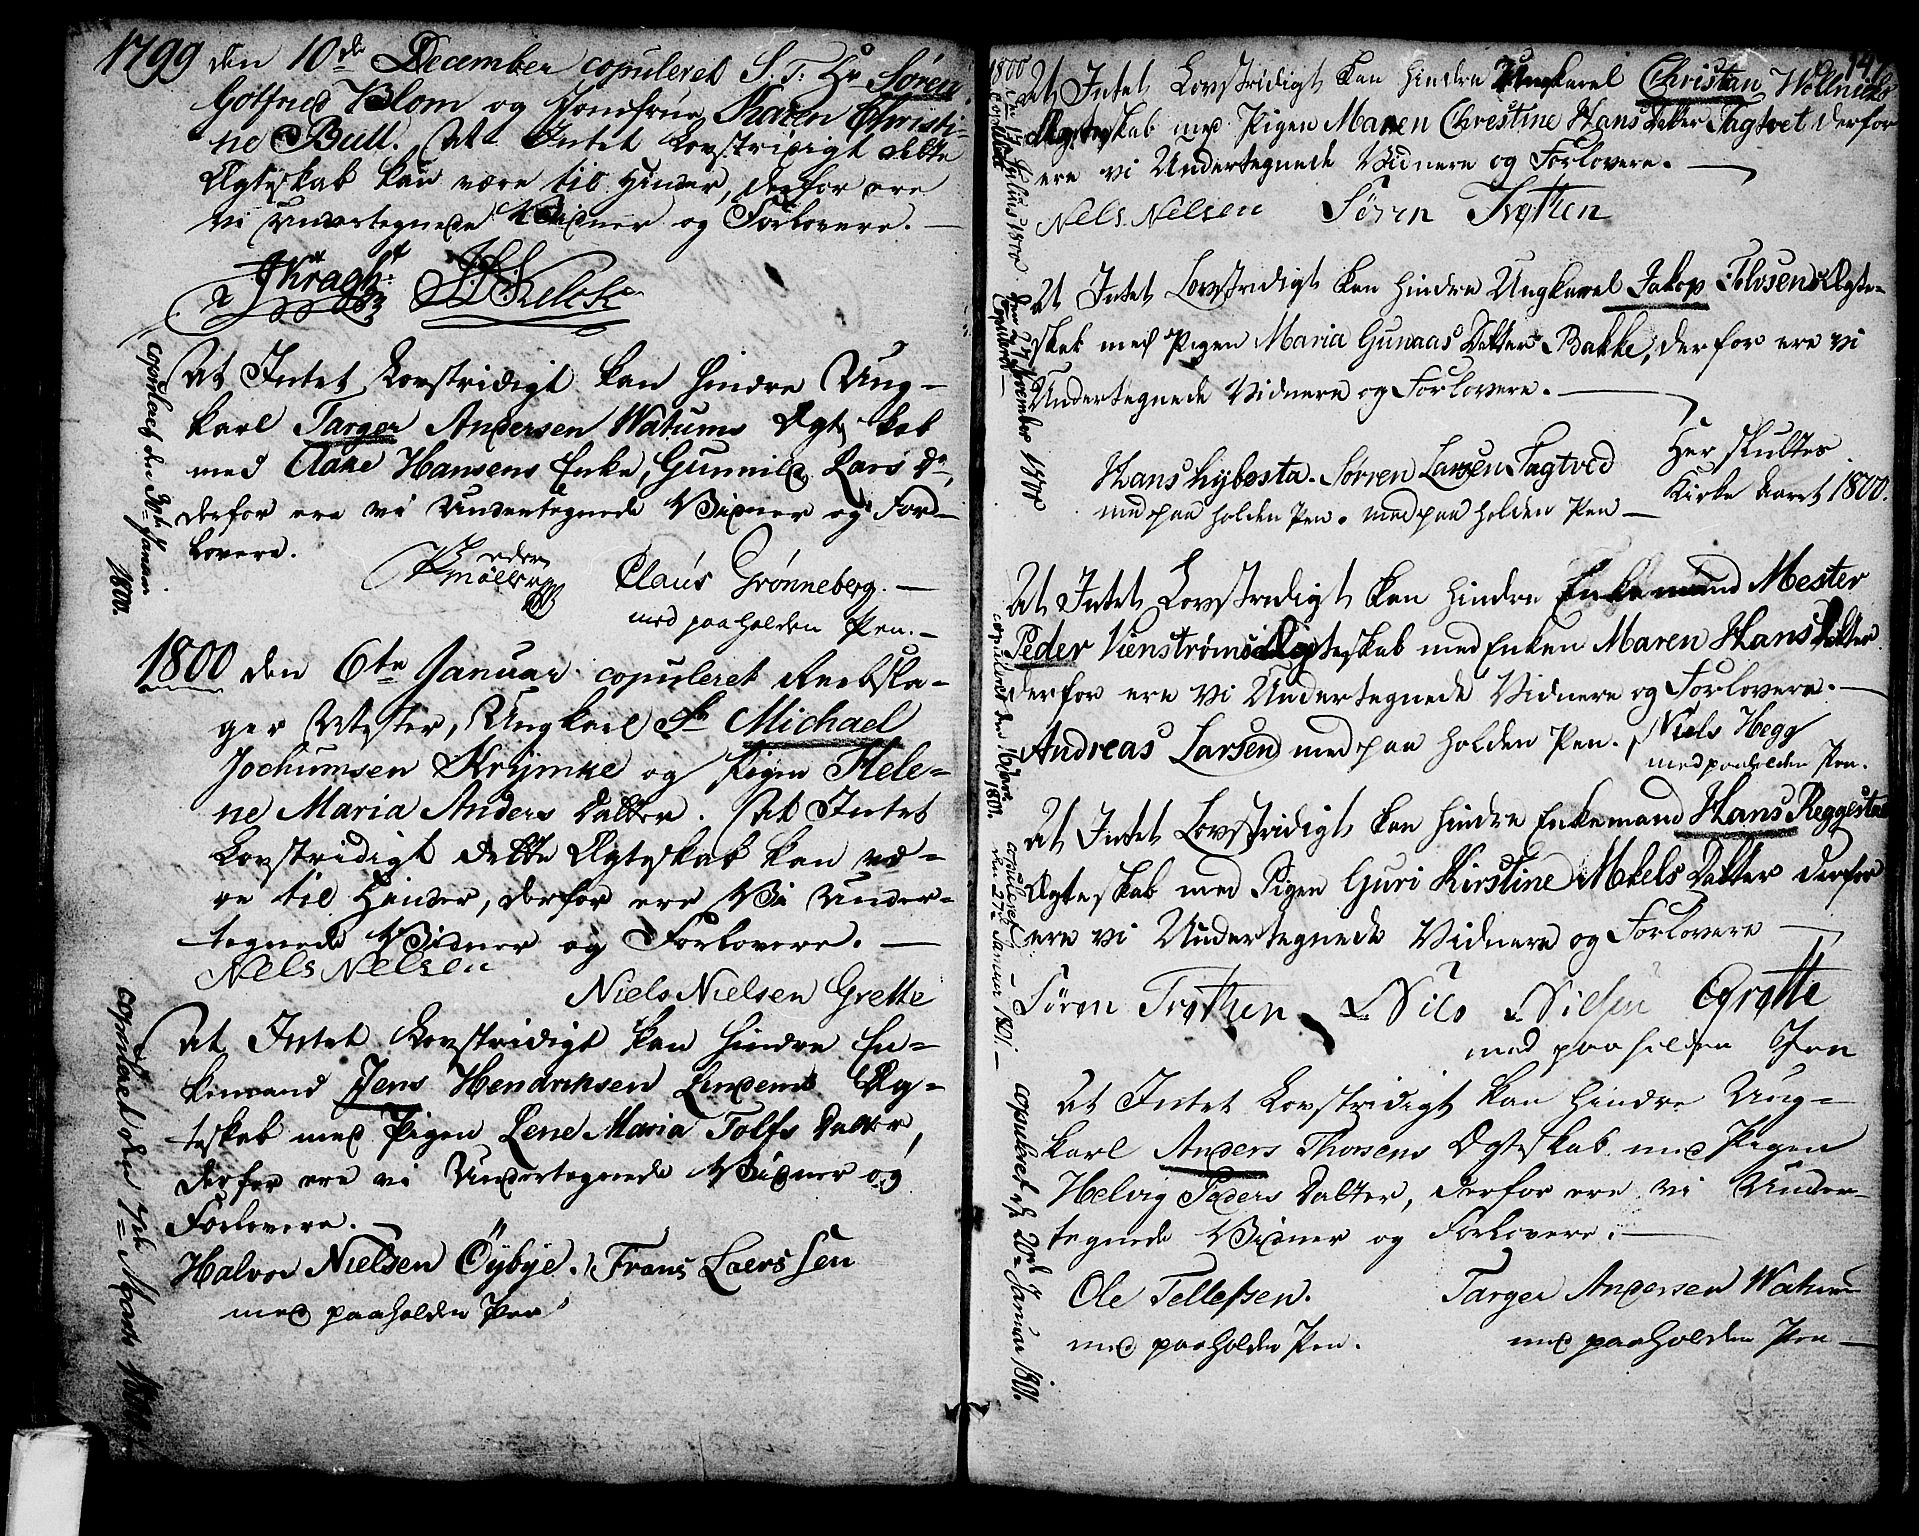 1799 den 10de December copuleret S. T. Hr Søren
Gotfried Blom og Jomfrue Karen Christi-
ne Bull. At Intet Lovstridigt dette
Ægteskab kan være til Hinder, derfor ere
vi Undertegnede Vidner og Forlovere. —
JKragh
At Intet Lovstridigt kan hindre Ung-
karl Targer Andersen Watums Ægteskab
med Aake Hansens Enke, Gunnild Lars Dr,
derfor ere vi Undertegnede Vidner og For-
lovere.
Peder Møller Claus Grønneberg. —
med paaholden Pen. —
copuleret den Januari
1800.
1800 den 6te Januar copuleret Reebsla-
ger Mester, Ungkarl Sr Michael
Jochumsen Krymke og Pigen Hele-
ne Maria Anders Datter. At Intet
Lovstridigt dette Ægteskab kan væ-
re til Hinder, derfor ere Vi Under-
tegnede Vidner og Forlovere. —
Nels Nelsen
Niels Nielsen Grette
At Intet Lovstridigt kan hindre En-
kemand Jens Hendriksen Lindems Æg-
teskab med Pigen Lene Maria Tolfs Datter,
derfor ere vi Undertegnede Vidner og
Forlovere. —
Halvor Nielsen Öybye. Frans Laerssen
med paaholden Pen
copuleret den 7de Marts 1800
147
At Intet Lovstridigt kan hindre Ungkarel Christian
Ægteskab med Pigen Maren Chrestine Hans Datter Tagtvet derfor
ere vi Undertegnede Vidnere og Forlovere. —
Nels Nelsen Sörn Trotten
1800 Julius 1800 copuleret
At Intet Lovstridigt kan hindre Ungkarel Jakop Tolvsens Ægte-
skab med Pigen Maria Gunaas Datter Bakke, derfor ere vi
Undertegnede Vidnere og Forlovere. —
Hans hybesta. Sörren Larsen Tagtved
med paa holden Pen. med paa holden Pen —
Her slutter
Kirke Aaret 1800.
November 1800 Copuleret
At Intet Lovstridigt kan hindre Enkemand Mester
Peder Vienstrøms Ægteskab med Enken Maren Hans Datter
derfor ere vi Undertegnede Vidnere og Forlovere. —
Andreas Larsen med paa holden Pen. Niels Hegg
med paaholden Pen.
copuleret den 16
At Intet Lovstridigt kan hindre Enkemand Hans Reggestad
Ægteskab med Pigen Guri Kirstine Mkels Datter derfor
ere vi Undertegnede Vidnere og Forlovere —
Sören Trotten Nils Nielsen Grøtte
med paaholden Pen
copuleret den 27de Januar 1801. —
At Intet Lovstridigt kan hindre Ung-
karl Anders Thorsens Ægteskab med Pigen
Helvig Peders Datter, derfor ere vi Under-
tegnede Vidner og Forlovere. —
Ole Tellefsen. Targer Andersen Watum
med paaholden Pen. med paaholden Pen —
copuleret d. 20de Januar 1801.